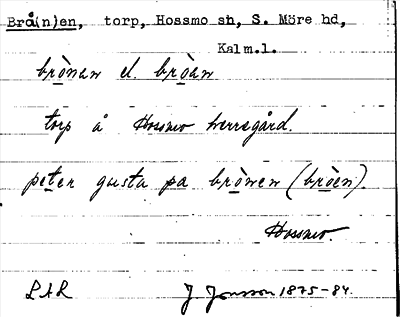 Brå(n)en, torp, Hossmo sn, S. Möre hd,
Kalm.l.
brònan el. bròan
torp å Hossmo herregård.
peter gusta pa brònen (bròen).
Hossmo.
LAL
J Jonsson 1875-84.